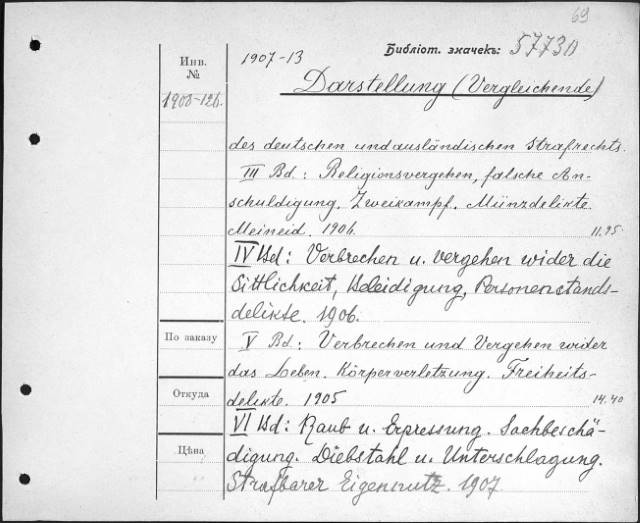 69
Библіот. значекъ: 57730
Инв.
№
1900-126.
1907-13
Darstellung (Vergleichende)
des deutschen und ausländischen Strafrechts.
III Bd: Religionsvergehen, falsche An-
schuldigung. Zweikampf. Münzdelikte.
Meineid. 1906. 11.95
IV Bd: Verbrechen u. vergehen wider die
Sittlichkeit, Beleidigung, Personenstands-
delikte. 1906.
По заказу
V Bd: Verbrechen und Vergehen wider
das Leben. Körperverletzung. Freiheits-
Откуда
delikte. 1905 14.40
VI Bd: Raub u. Erpressung. Sachbeschä-
Цѣна
digung. Diebstahl u. Unterschlagung.
Strafbarer Eigennutz. 1907